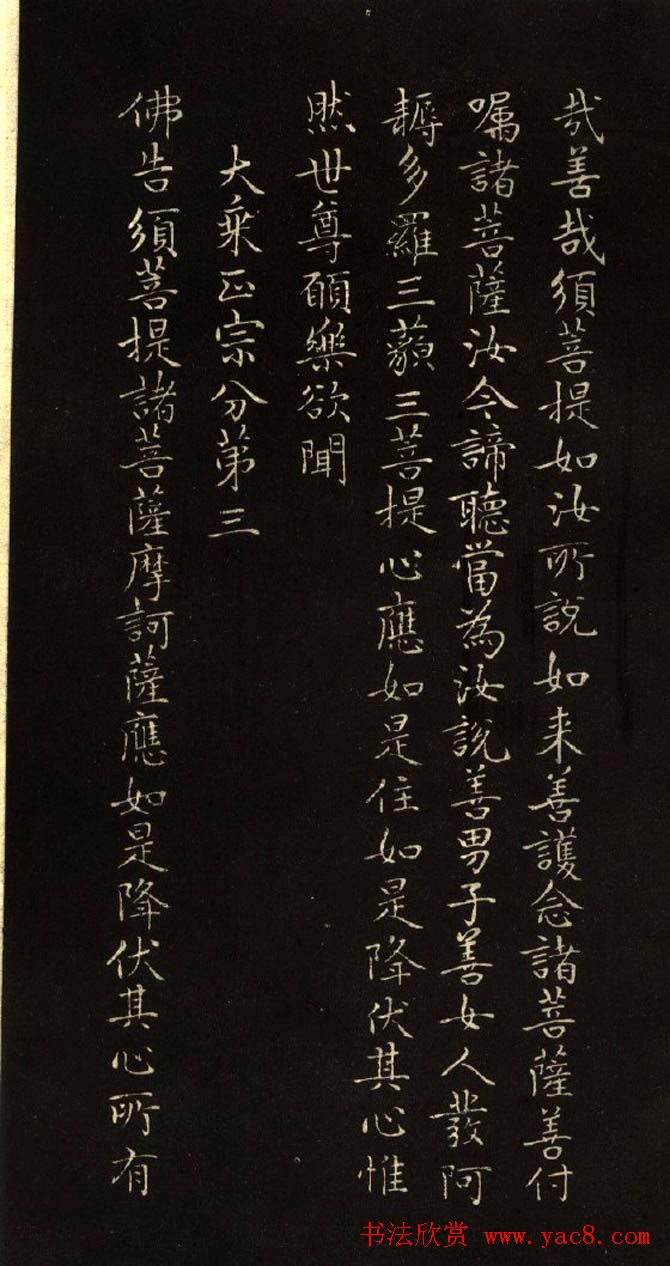 哉善哉須菩提如汝所說如来善護念諸菩薩善付
嘱諸菩薩汝今諦聽當為汝說善男子善女人發阿
耨多羅三藐三菩提心應如是住如是降伏其心惟
然世尊願樂欲聞
大乘正宗分第三
佛告須菩提諸菩薩摩訶薩應如是降伏其心所有
书法欣赏 www.yac8.com